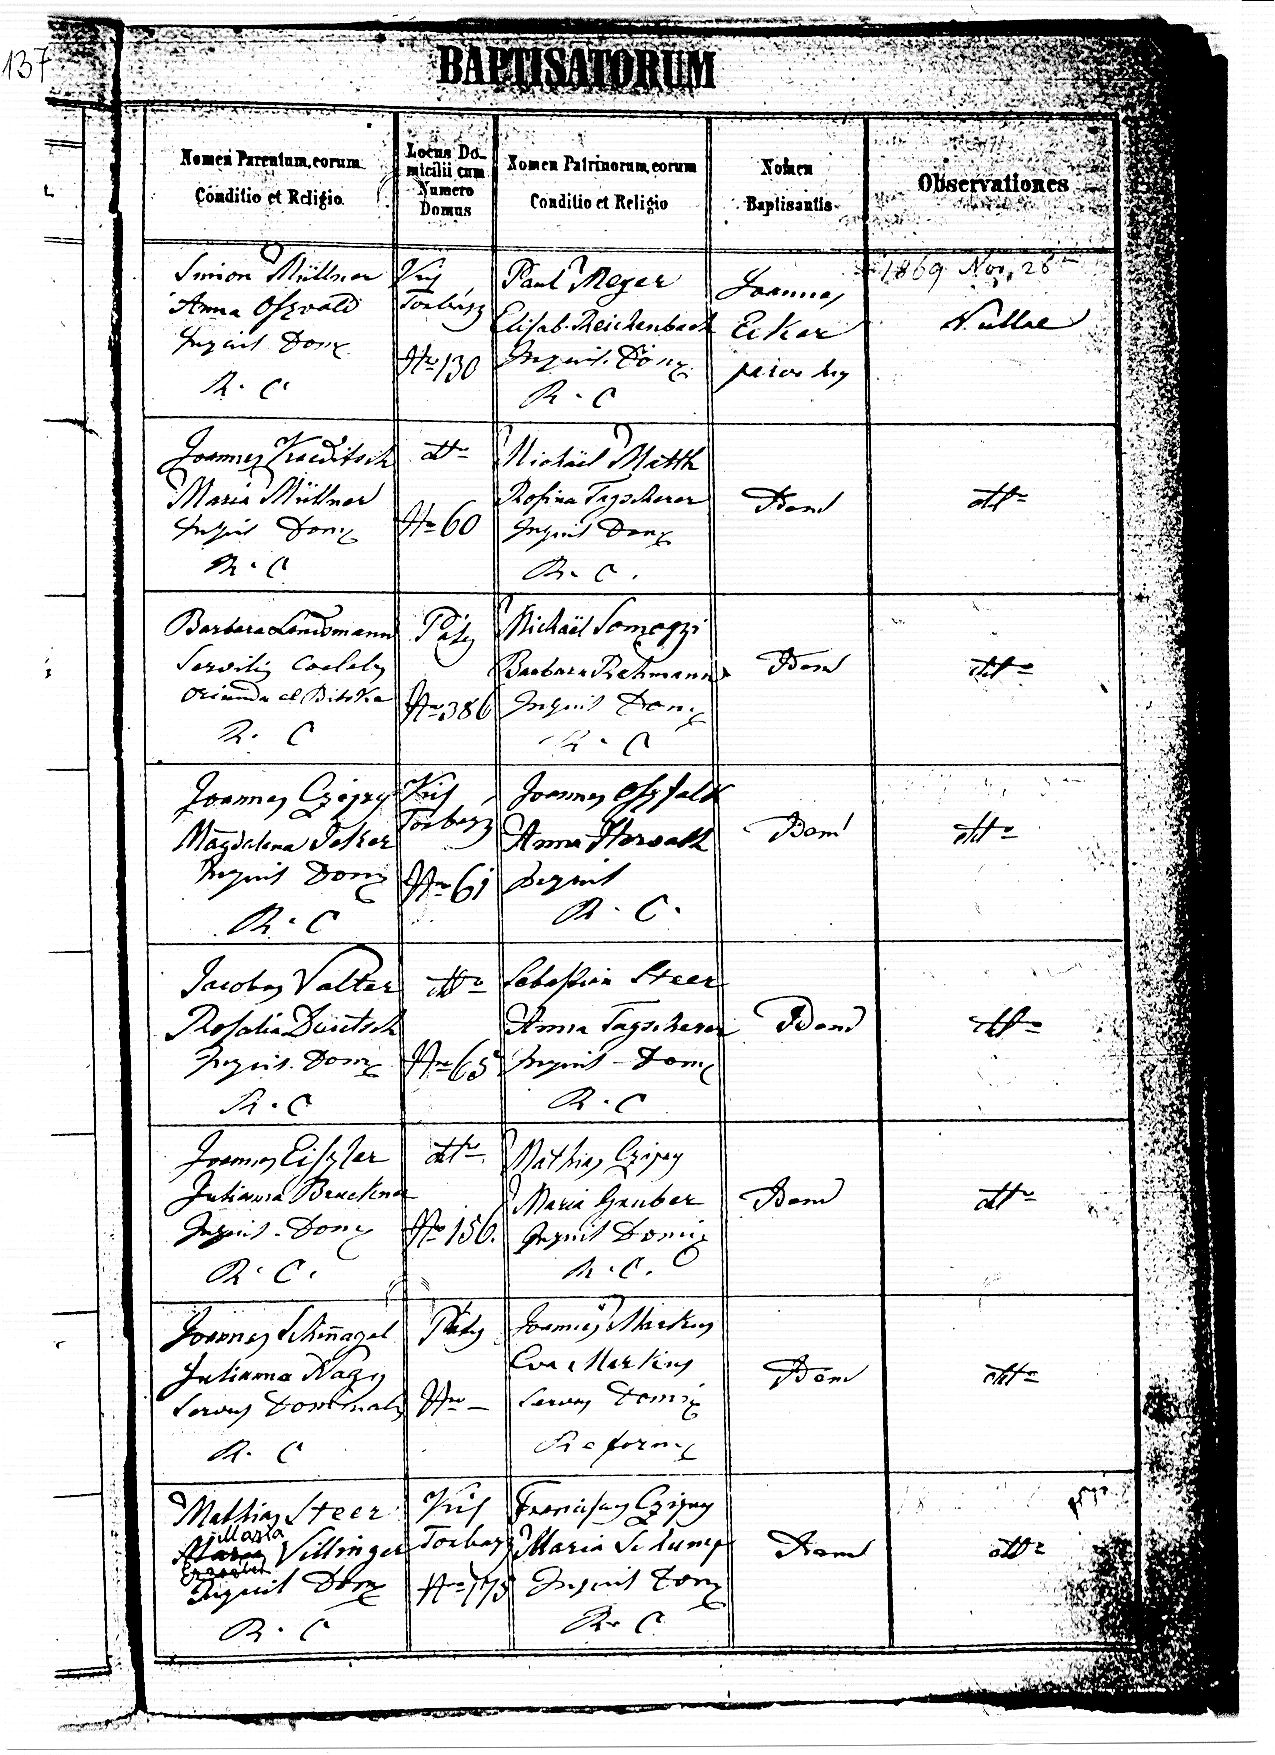 137
BAPTISATORUM
Nomen Parentum, eorum
Conditio et Religio
Locus Do-
micilii cum
Numero
Domus
Nomen Patrinorum, eorum
Conditio et Religio
Nomen
Baptisantis
Observationes
Simon Müllner
Anna Oszvald
Inquil. Dom
R. C.
Kis
Torbágy
Nr 130
Paul Meger
Elisab. Reichenbach
Inquil. Dom
R. C
Joannes
Eckar
parochy
1869 Nov. 26
Nullae
Joannes
Maria Müllner
Inquil Dom
R. C
dtto
Nr 60
Michaël Matth
Rosina Tagscherer
Inquil Dom
R. C.
Idem
dtto
Barbara Landsmann
Servilis Coelebs
oriunda e Bitske
R. C
Páty
Nr 386
Michaël Somogyi
Barbara Rehmann
Inquil Dom
R. C
Idem
dtto
Joannes Czigny
Magdalena Jeker
Inquil Dom
R. C
Kis
Torbágy
Nr 61
Joannes Oszfald
Anna Horvath
Inquil
R. C.
Idem
dtto
Jacobus Valter
Rosalia Deutsch
Inquil. Dom
R. C
dtto
Nr 65
Sebastian Steer
Anna Tagscherer
Inquil Dom
R. C
Idem
dtto
Joannes Eiszler
Julianna Bruckner
Inquil. Dom
R. C.
dtto
Nr 156.
Mathias Czigny
Maria Gruber
Inquil Domin
R. C.
Idem
dtto
Joannes Schinagel
Julianna Nagy
Servus Dominalis
R. C
Páty
Nr –
Joannes Markus
Eva Markus
Servus Domin
Reform
Idem
dtto
Mathias Steer
Maria
Villinger
Inquil Dom
R. C
Kis
Torbágy
Nr 175
Franciscus Czigny
Maria Schump
Inquil Dom
R. C
Idem
dtto